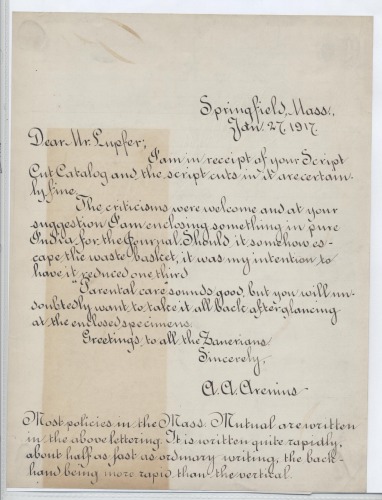 Springfield, Mass.,
Jan. 27, 1917.
Dear Mr. Lupfer;
I am in receipt of your Script
Cut Catalog and the script cuts in it are certain-
ly fine.
The criticisms were welcome and at your
suggestion I am enclosing something in pure
India for the Journal. Should it somehow es-
cape the waste basket, it was my intention to
have it reduced one third.
"Parental care" sounds good, but you will un-
doubtedly want to take it all back after glancing
at the enclosed specimens.
Greetings to all the Zanerians.
Sincerely,
A. A. Arenius
Most policies in the Mass. Mutual are written
in the above lettering. It is written quite rapidly,
about half as fast as ordinary writing, the back-
hand being more rapid than the vertical.